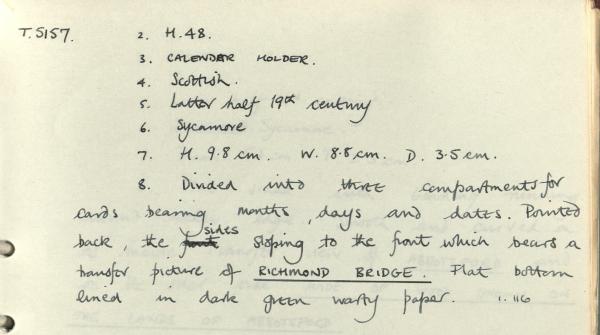 T.5157. 2. H.48.
3. CALENDAR HOLDER.
4. Scottish.
5. Latter half 19th century
6. Sycamore
7. H. 9.8 cm. W. 8.8 cm. D. 3.5 cm.
8. Divided into three compartments for
cards bearing months, days and dates. Pointed
back, the sides sloping to the front which bears a
transfer picture of RICHMOND BRIDGE. Flat bottom
lined in dark green warty paper.